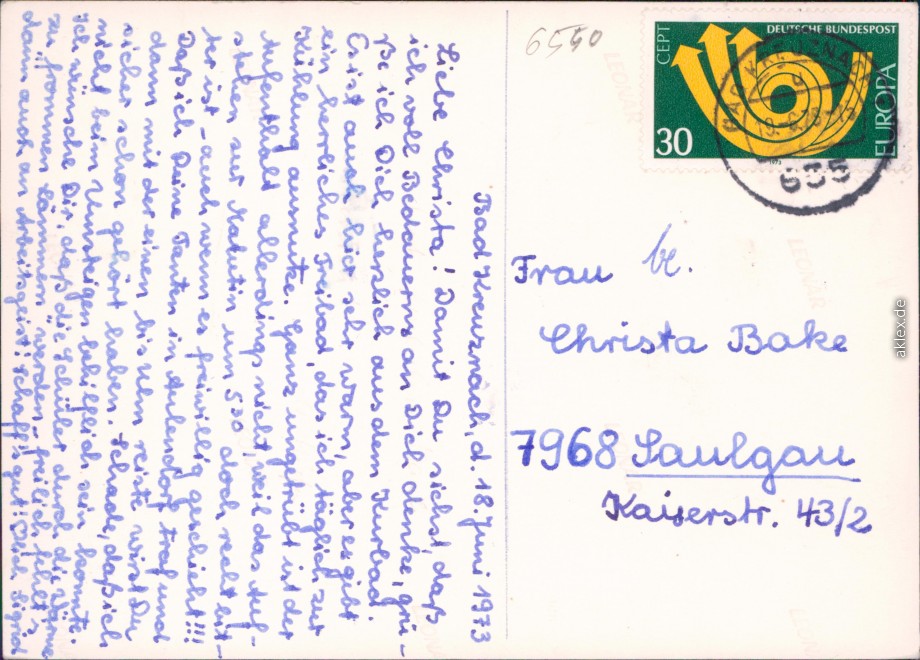 Bad Kreuznach, d. 18. Juni 1973
Liebe Christa! Damit Du siehst, daß
ich voll Bedauerns an Dich denke, grü-
ße ich Dich herzlich aus dem Kurbad.
Es ist auch hier sehr warm, aber es gibt
ein herrliches Freibad, das ich täglich zur
Kühlung ausnutze. Ganz ungetrübt ist der
Aufenthalt allerdings nicht, weil das Auf-
stehen zur Matutin um 530 doch recht bit-
ter ist - auch wenn es freiwillig geschieht!!!
Daß ich Deine Tanten in Aulendorf traf und
dann mit der einen bis Ulm reiste wirst Du
sicher schon gehört haben. Schade, daß ich
nicht beim Umsteigen behilflich sein konnte.
Ich wünsche Dir, daß die Schüler durch die Wärme
zu frommen Lämmern werden - freilich fehlt's
dann auch an Arbeitsgeist! Schaff's gut! Dich Sigrid
6550
DEUTSCHE BUNDESPOST
CEPT
EUROPA
30
1973
BAD KREUZNACH
655
Frau
Christa Bake
7968 Saulgau
Kaiserstr. 43/2
aklex.de
LEONAR
LEONAR